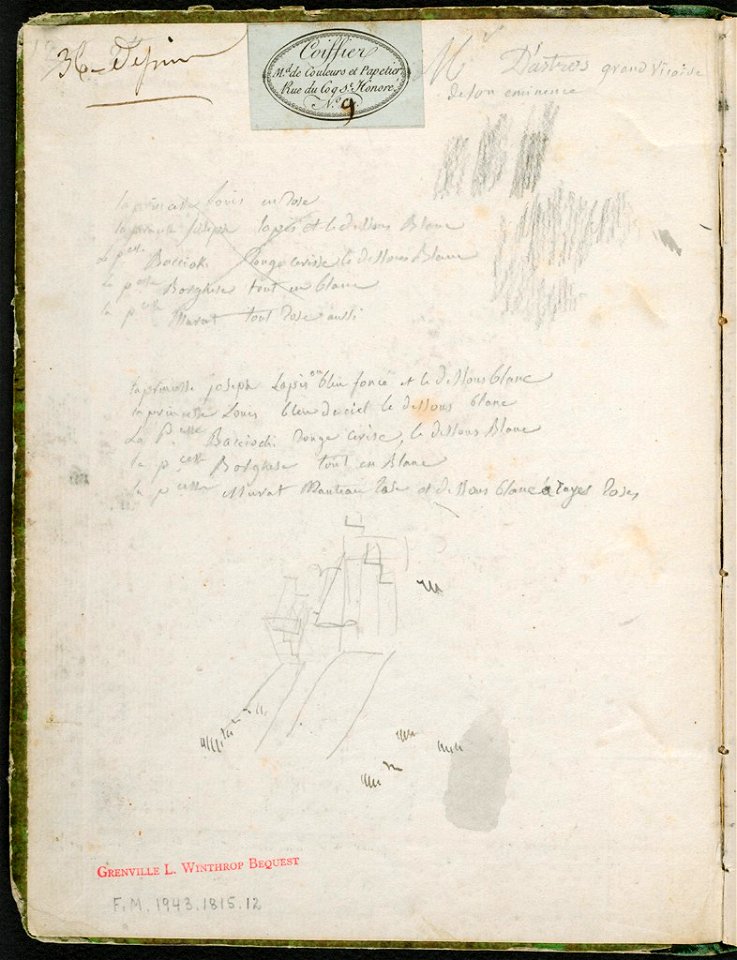 36 - Dessin
Coiffier
Md. de Couleurs et Papetier
Rue du Coq St. Honoré
No. 9
Mr D'astros grand vicaire
de son eminence
la princesse Louis en rose
la princesse joseph lapis et le dessous Blanc
La pesse Bacciochi Rouge cerisse le dessous Blanc
la pesse Borghese tout en blanc
la pesse Murat tout Rose aussi
la princesse joseph Lapis ou bleu foncé et le dessous blanc
la princesse Louis bleu de ciel le dessous blanc
La Pesse Bacciochi Rouge cerise, le dessous Blanc
la pcesse Borghese tout en Blanc
la pcesse Murat Manteau Rose et dessous blanc à rayes Roses
Grenville L. Winthrop Bequest
F.M. 1943.1815.12